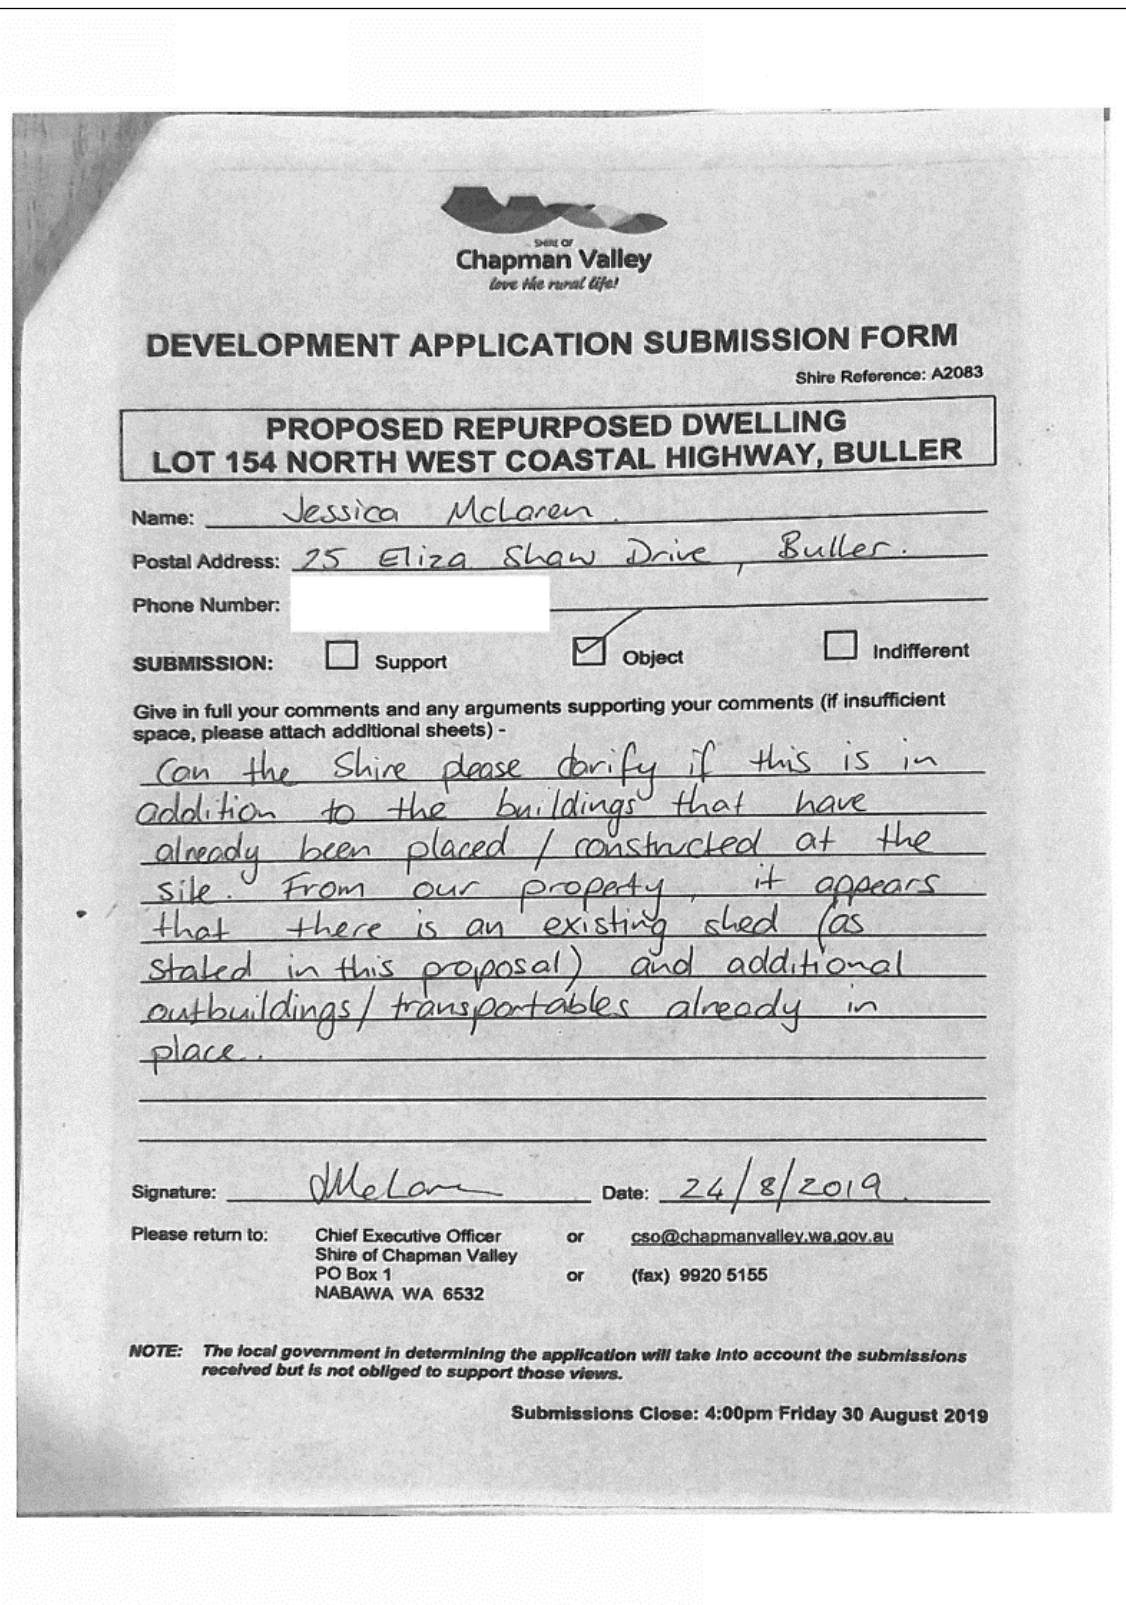 SHIRE OF
Chapman Valley
love the rural life!
DEVELOPMENT APPLICATION SUBMISSION FORM
Shire Reference: A2083
PROPOSED REPURPOSED DWELLING
LOT 154 NORTH WEST COASTAL HIGHWAY, BULLER
Name: Jessica McLaren.
Postal Address: 25 Eliza Shaw Drive, Buller.
Phone Number:
SUBMISSION: Support Object Indifferent
Give in full your comments and any arguments supporting your comments (if insufficient
space, please attach additional sheets) -
Can the Shire please clarify if this is in
addition to the buildings that have
already been placed / constructed at the
site. From our property, it appears
that there is an existing shed (as
stated in this proposal) and additional
outbuildings/ transportables already in
place.
Signature: JMcLaren Date: 24/8/2019.
Please return to: Chief Executive Officer or cso@chapmanvalley.wa.gov.au
Shire of Chapman Valley
PO Box 1 or (fax) 9920 5155
NABAWA WA 6532
NOTE: The local government in determining the application will take into account the submissions
received but is not obliged to support those views.
Submissions Close: 4:00pm Friday 30 August 2019